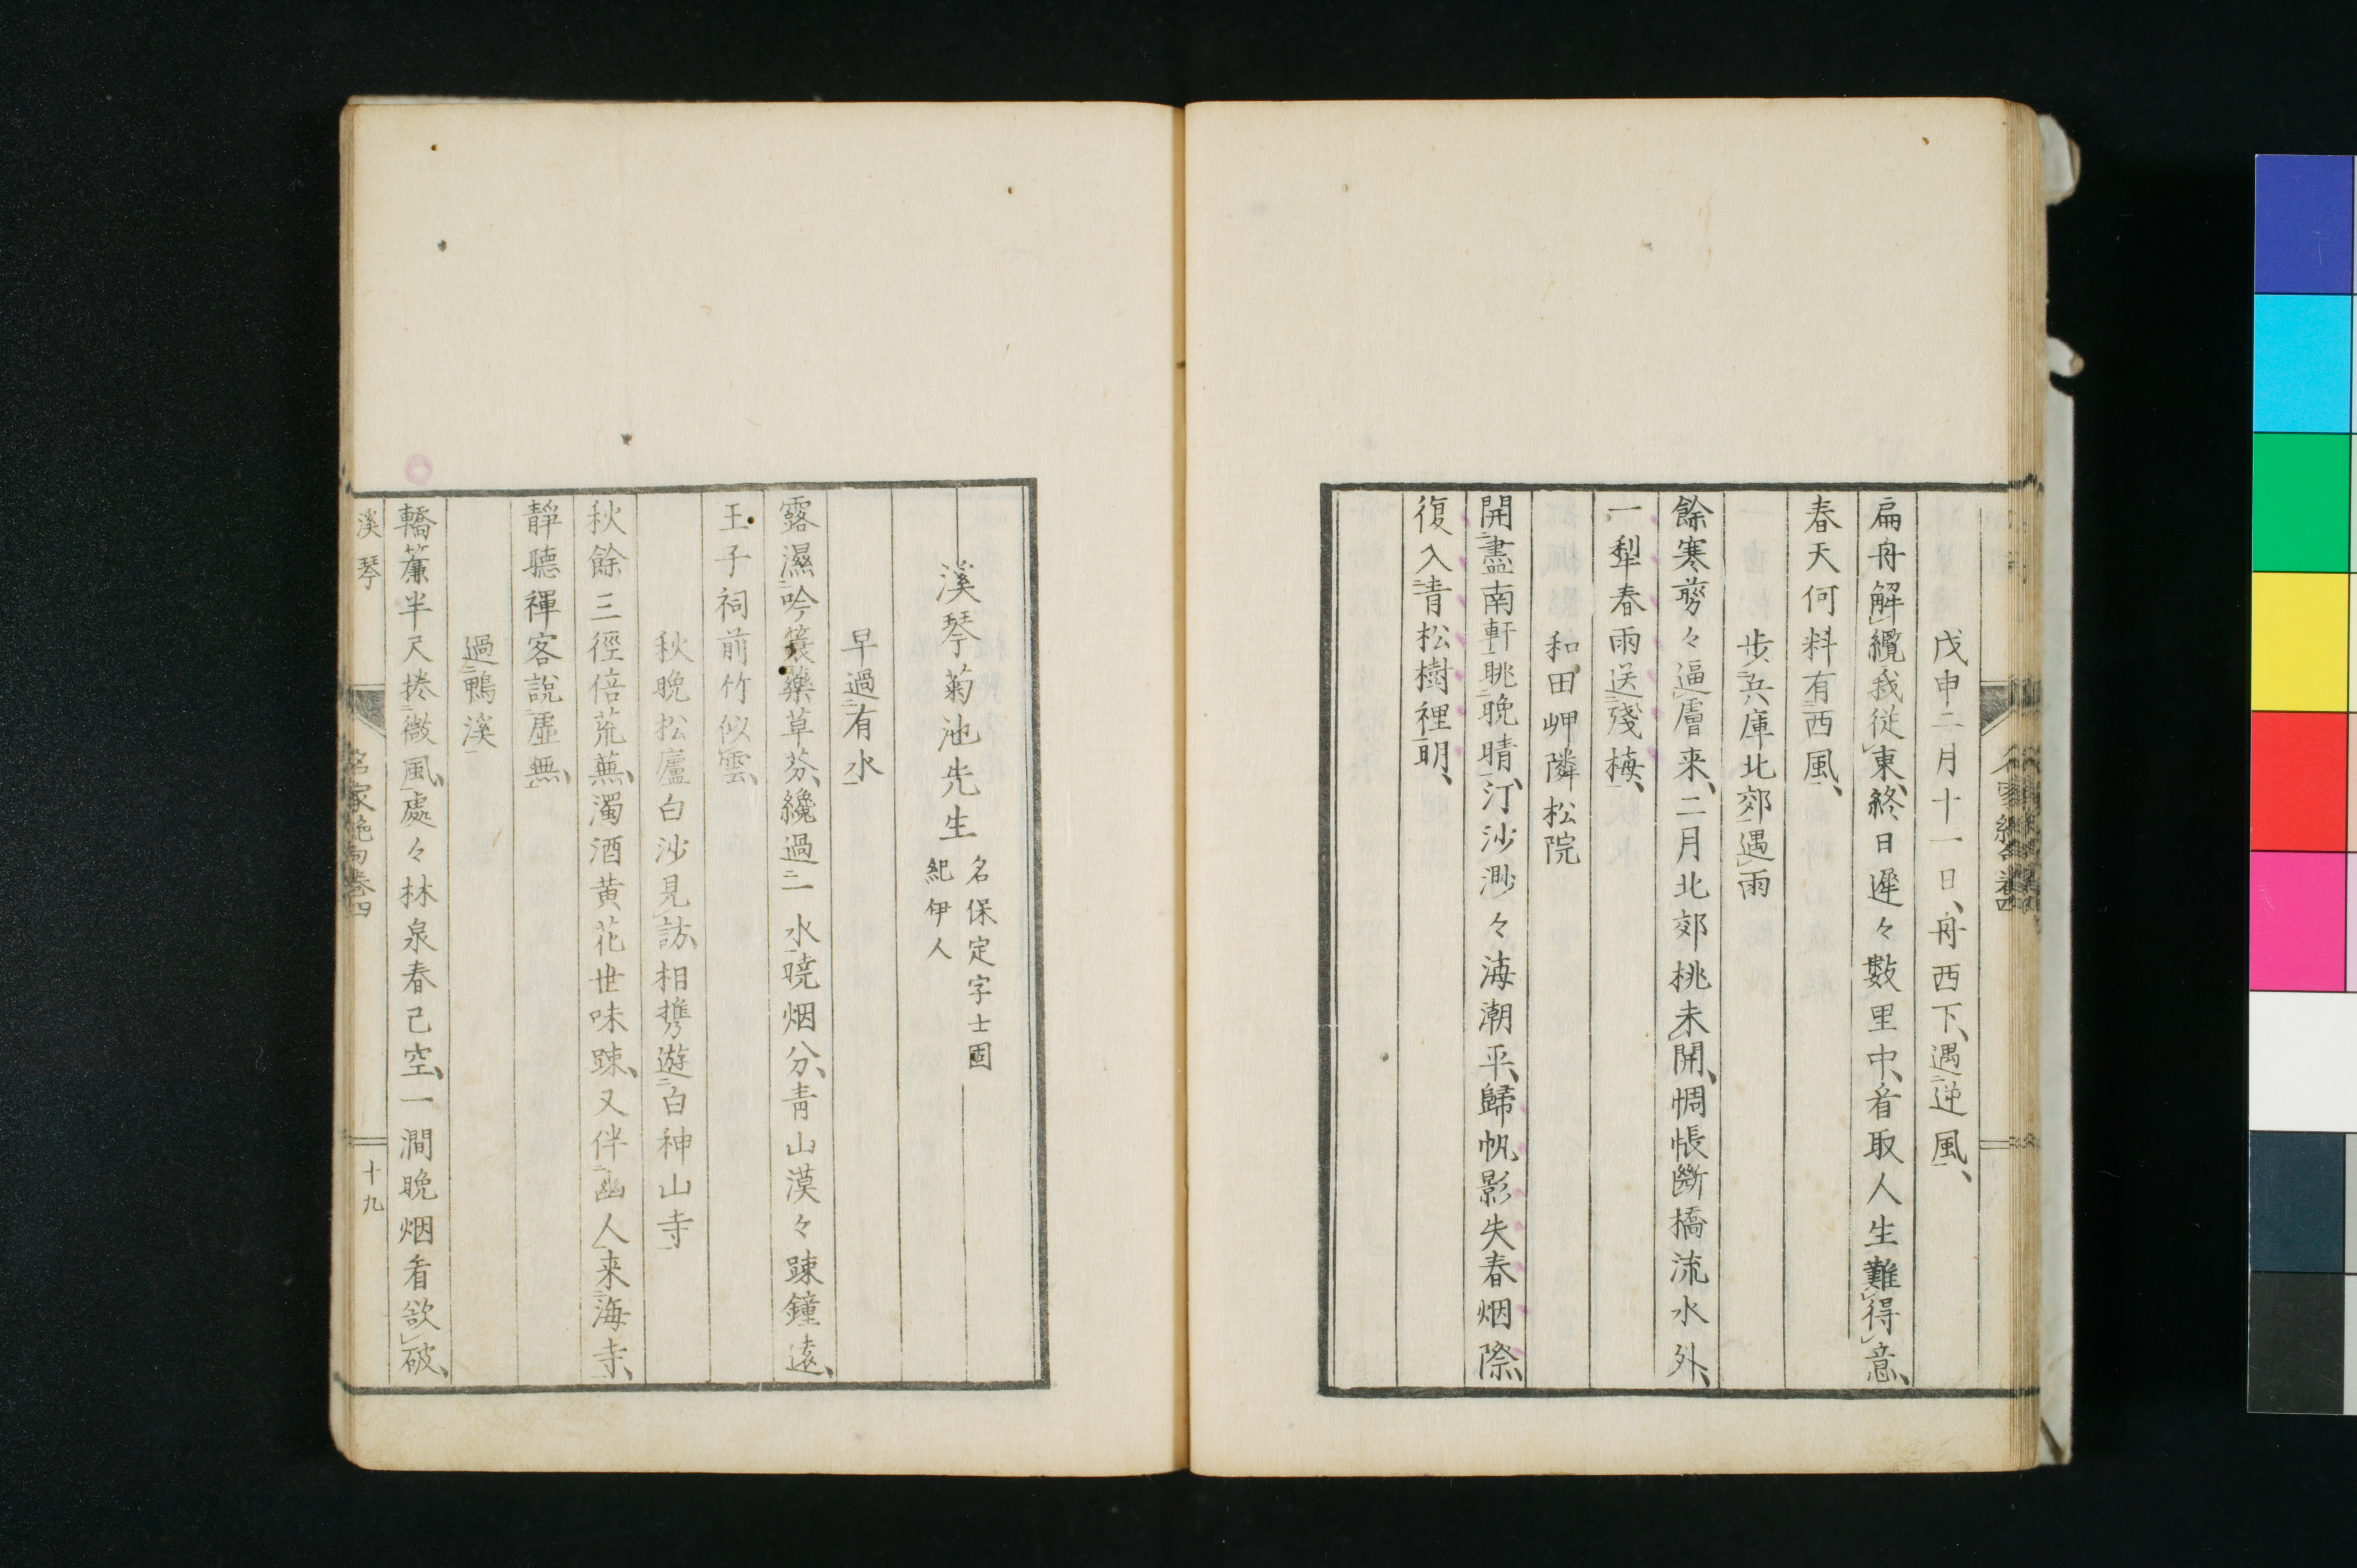 戊申二月十一日、舟西下、遇逆風、
扁舟解纜我従東、終日遅々數里中、看取人生難得意、
春天何料有西風、
步兵庫北郊遇雨
餘寒剪々逼膚来、二月北郊桃未開、惆悵斷橋流水外、
一犁春雨送殘梅、
和田岬隣松院
開盡南軒眺晩晴、汀沙渺々海潮平、歸帆影失春烟際、
復入青松樹裡明、
溪琴菊池先生
名保定字士固
紀伊人
早過有水
露濕吟簑藥草芬、纔過一水暁烟分、青山漠々踈鐘遠、
王子祠前竹似雲、
秋晩松廬白沙見訪、相携遊白神山寺
秋餘三徑倍荒蕪、濁酒黄花世味踈、又伴幽人来海寺、
靜聽禪客說虛無、
過鴨溪
轎簾半尺捲微風、處々林泉春已空、一澗晩烟看欲破、
溪琴
名家絶句卷四
十九